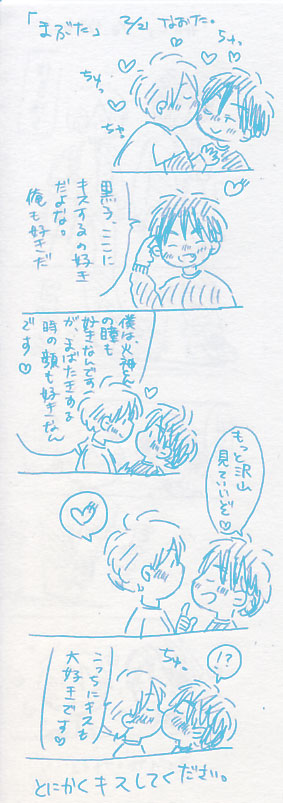 「まぶた」 2/21 なおた。
ちゅっ
ちゅっ
ちゅっ
黒子、ここに
キスするの好き
だよな。
俺も好きだ
僕は、火神くん
の瞳も
好きなんです
が、まばたきする
時の顔も好きなん
です♡
もっと沢山
見ていいぞ♡
!?
ちゅっ
こっちにキスも
大好きです♡
とにかくキスしてください。